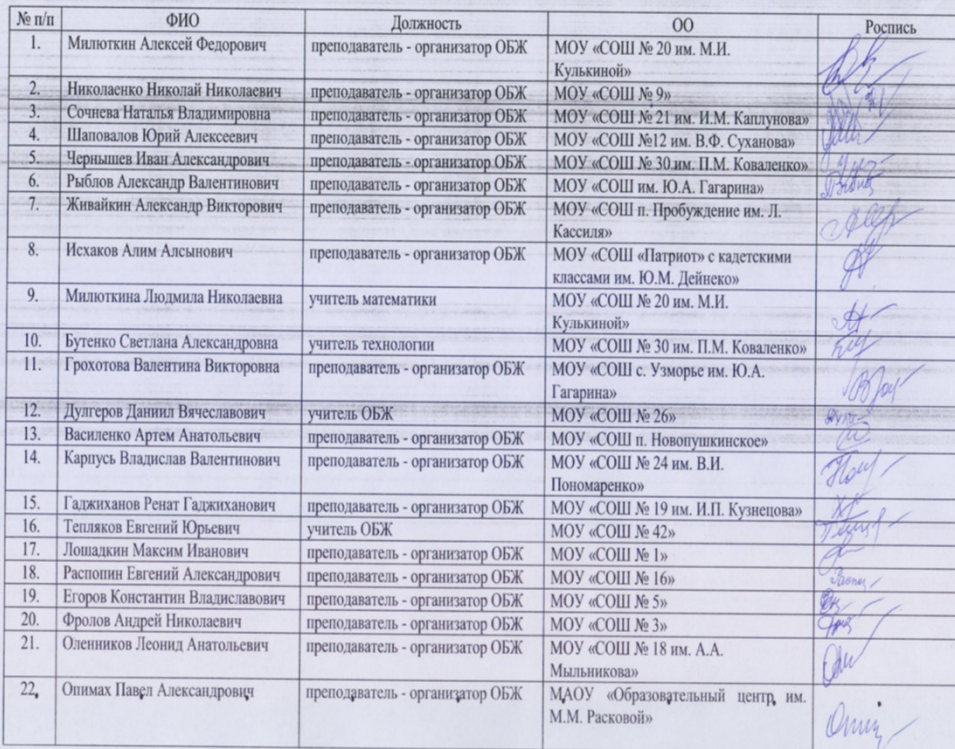 № п/п ФИО Должность ОО Роспись
1. Милюткин Алексей Федорович преподаватель - организатор ОБЖ МОУ «СОШ № 20 им. М.И.
Кулькиной»
2. Николаенко Николай Николаевич преподаватель - организатор ОБЖ МОУ «СОШ № 9»
3. Сочнева Наталья Владимировна преподаватель - организатор ОБЖ МОУ «СОШ № 21 им. И.М. Каплунова»
4. Шаповалов Юрий Алексеевич преподаватель - организатор ОБЖ МОУ «СОШ №12 им. В.Ф. Суханова»
5. Чернышев Иван Александрович преподаватель - организатор ОБЖ МОУ «СОШ № 30 им. П.М. Коваленко»
6. Рыблов Александр Валентинович преподаватель - организатор ОБЖ МОУ «СОШ им. Ю.А. Гагарина»
7. Живайкин Александр Викторович преподаватель - организатор ОБЖ МОУ «СОШ п. Пробуждение им. Л.
Кассиля»
8. Исхаков Алим Алсынович преподаватель - организатор ОБЖ МОУ «СОШ «Патриот» с кадетскими
классами им. Ю.М. Дейнеко»
9. Милюткина Людмила Николаевна учитель математики МОУ «СОШ № 20 им. М.И.
Кулькиной»
10. Бутенко Светлана Александровна учитель технологии МОУ «СОШ № 30 им. П.М. Коваленко»
11. Грохотова Валентина Викторовна преподаватель - организатор ОБЖ МОУ «СОШ с. Узморье им. Ю.А.
Гагарина»
12. Дулгеров Даниил Вячеславович учитель ОБЖ МОУ «СОШ № 26»
13. Василенко Артем Анатольевич преподаватель - организатор ОБЖ МОУ «СОШ п. Новопушкинское»
14. Карпусь Владислав Валентинович преподаватель - организатор ОБЖ МОУ «СОШ № 24 им. В.И.
Пономаренко»
15. Гаджиханов Ренат Гаджиханович преподаватель - организатор ОБЖ МОУ «СОШ № 19 им. И.П. Кузнецова»
16. Тепляков Евгений Юрьевич учитель ОБЖ МОУ «СОШ № 42»
17. Лошадкин Максим Иванович преподаватель - организатор ОБЖ МОУ «СОШ № 1»
18. Распопин Евгений Александрович преподаватель - организатор ОБЖ МОУ «СОШ № 16»
19. Егоров Константин Владиславович преподаватель - организатор ОБЖ МОУ «СОШ № 5»
20. Фролов Андрей Николаевич преподаватель - организатор ОБЖ МОУ «СОШ № 3»
21. Оленников Леонид Анатольевич преподаватель - организатор ОБЖ МОУ «СОШ № 18 им. А.А.
Мыльникова»
22, Опимах Павел Александрович преподаватель - организатор ОБЖ МАОУ «Образовательный центр им.
М.М. Расковой»